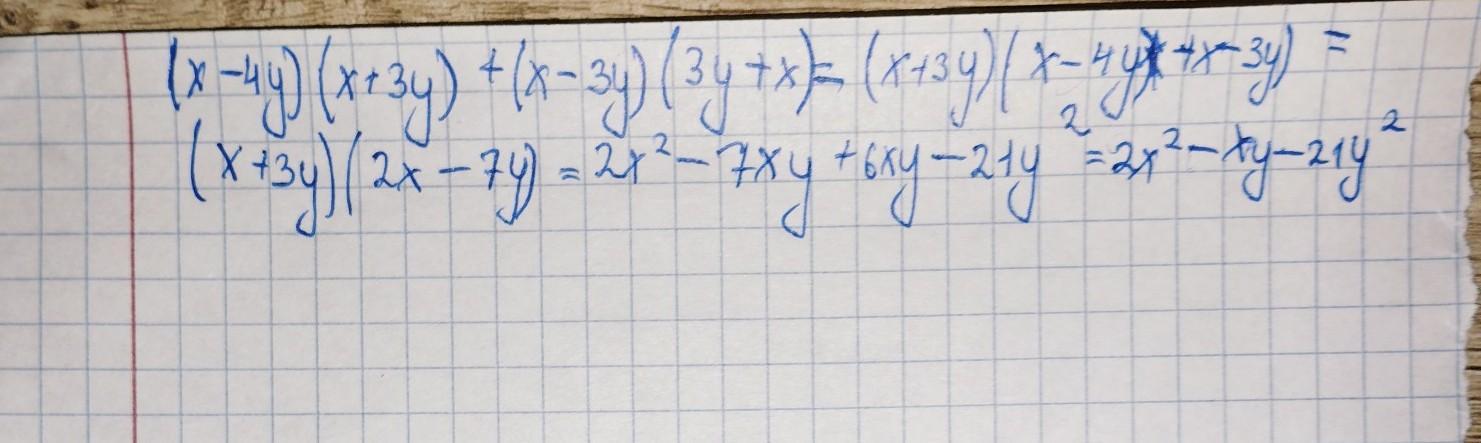 (x-4y)(x+3y)+(x-3y)(3y+x)=(x+3y)(x-4y+x-3y)=
(x+3y)(2x-7y)=2x²-7xy+6xy-21y²=2x²-xy-21y²